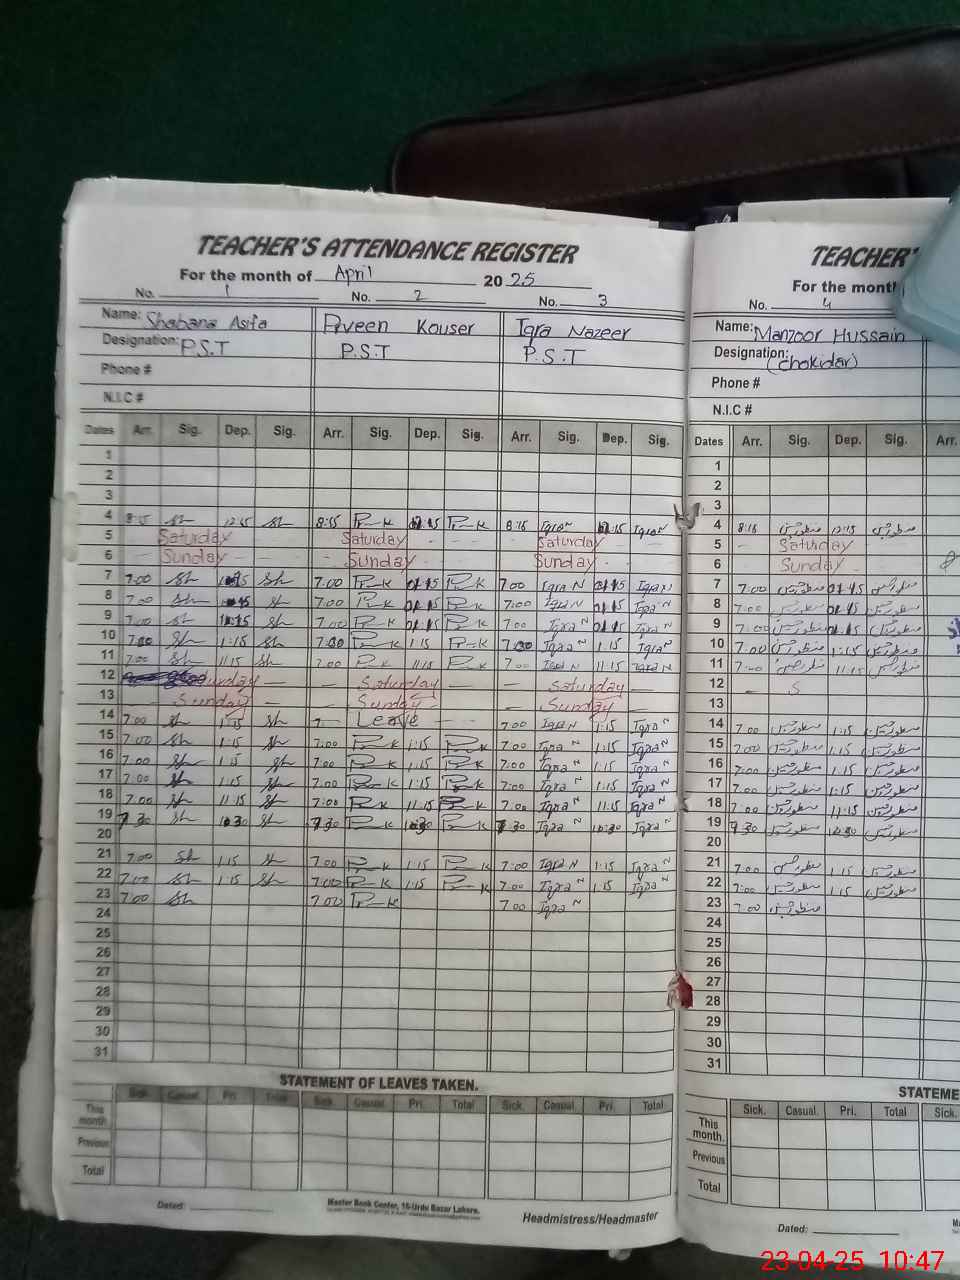 TEACHER'S ATTENDANCE REGISTER
For the month of April 2025
No. 1 No. 2 No. 3
Name: Shabana Asifa Prveen Kouser Iqra Nazeer
Designation: P.S.T P.S.T P.S.T
Phone #
N.I.C #
Dates Arr. Sig. Dep. Sig. Arr. Sig. Dep. Sig. Arr. Sig. Dep. Sig.
1
2
3
4 8:15 Sh 12:15 Sh 8:15 P-K P-K 8:15 Iqra N Iqra N
5 Saturday Saturday Saturday
6 Sunday Sunday Sunday
7 7:00 Sh Sh 7:00 P-K 01:45 P-K 7:00 Iqra N 01:45 Iqra N
8 7:00 Sh Sh 7:00 P-K P-K 7:00 Iqra N Iqra N
9 7:00 Sh Sh 7:00 P-K P-K 7:00 Iqra N Iqra N
10 7:00 Sh 1:15 Sh 7:00 P-K 1:15 P-K 7:00 Iqra N 1:15 Iqra N
11 7:00 Sh 11:15 Sh 7:00 P-K 11:15 P-K 7:00 Iqra N 11:15 Iqra N
12 Saturday Saturday
13 Sunday Sunday Sunday
14 7:00 Sh 1:15 Sh 7 Leave 7:00 Iqra N 1:15 Iqra N
15 7:00 Sh 1:15 Sh 7:00 P-K 1:15 P-K 7:00 Iqra N 1:15 Iqra N
16 7:00 Sh 1:15 Sh 7:00 P-K 1:15 P-K 7:00 Iqra N 1:15 Iqra N
17 7:00 Sh 1:15 Sh 7:00 P-K 1:15 P-K 7:00 Iqra N 1:15 Iqra N
18 7:00 Sh 11:15 Sh 7:00 P-K 11:15 P-K 7:00 Iqra N 11:15 Iqra N
19 7:30 Sh 10:30 Sh 7:30 P-K 10:30 P-K 7:30 Iqra N 10:30 Iqra N
20
21 7:00 Sh 1:15 Sh 7:00 P-K 1:15 P-K 7:00 Iqra N 1:15 Iqra N
22 7:00 Sh 1:15 Sh 7:00 P-K 1:15 P-K 7:00 Iqra N 1:15 Iqra N
23 7:00 Sh 7:00 P-K 7:00 Iqra N
24
25
26
27
28
29
30
31
STATEMENT OF LEAVES TAKEN.
Sick. Casual. Pri. Total Sick. Casual. Pri. Total Sick. Casual. Pri. Total
This month.
Previous
Total
Dated:
Master Book Center, 16-Urdu Bazar Lahore.
Headmistress/Headmaster
TEACHER'
For the month
No. 4
Name: Manzoor Hussain
Designation: (Chokidar)
Phone #
N.I.C #
Dates Arr. Sig. Dep. Sig. Arr.
1
2
3
4 8:15 منظور حسین 12:15 منظور حسین
5 Saturday
6 Sunday
7 7:00 منظور حسین 01:45 منظور حسین
8 7:00 منظور حسین منظور حسین
9 7:00 منظور حسین منظور حسین
10 7:00 منظور حسین 1:15 منظور حسین
11 7:00 منظور حسین 11:15 منظور حسین
12 S
13
14 7:00 منظور حسین 1:15 منظور حسین
15 7:00 منظور حسین 1:15 منظور حسین
16 7:00 منظور حسین 1:15 منظور حسین
17 7:00 منظور حسین 1:15 منظور حسین
18 7:00 منظور حسین 11:15 منظور حسین
19 7:30 منظور حسین 10:30 منظور حسین
20
21 7:00 منظور حسین 1:15 منظور حسین
22 7:00 منظور حسین 1:15 منظور حسین
23 7:00 منظور حسین
24
25
26
27
28
29
30
31
STATEME
Sick. Casual. Pri. Total Sick.
This month.
Previous
Total
Dated:
23-04-25 10:47